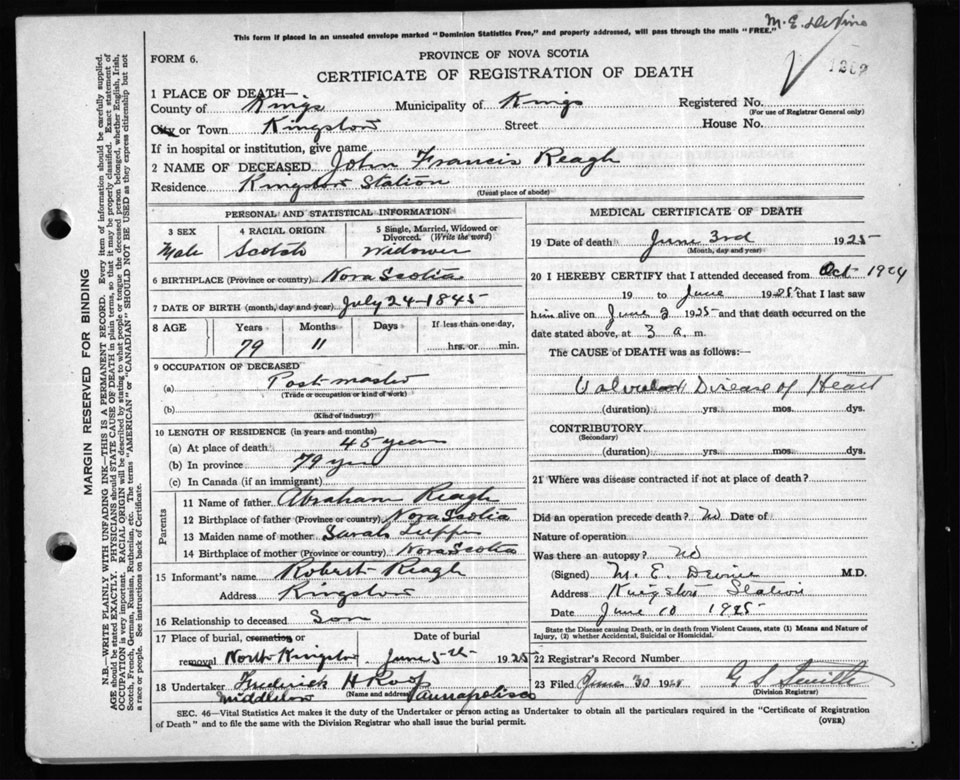 M. E. DeVine
This form if placed in an unsealed envelope marked "Dominion Statistics Free," and properly addressed, will pass through the mails "FREE."
1202
FORM 6.
PROVINCE OF NOVA SCOTIA
CERTIFICATE OF REGISTRATION OF DEATH
1 PLACE OF DEATH—
County of Kings Municipality of Kings Registered No.
(For use of Registrar General only)
City or Town Kingston Street House No.
If in hospital or institution, give name
2 NAME OF DECEASED John Francis Reagh
Residence Kingston Station
(Usual place of abode)
PERSONAL AND STATISTICAL INFORMATION
3 SEX 4 RACIAL ORIGIN 5 Single, Married, Widowed or Divorced. (Write the word)
Male Scotch Widower
6 BIRTHPLACE (Province or country) Nova Scotia
7 DATE OF BIRTH (month, day and year) July 24-1845
8 AGE Years Months Days If less than one day,
79 11 hrs. or min.
9 OCCUPATION OF DECEASED
(a) Post-master
(Trade or occupation or kind of work)
(b)
(Kind of industry)
10 LENGTH OF RESIDENCE (in years and months)
(a) At place of death 45 years
(b) In province 79 yrs
(c) In Canada (if an immigrant)
Parents
11 Name of father Abraham Reagh
12 Birthplace of father (Province or country) Nova Scotia
13 Maiden name of mother Sarah
14 Birthplace of mother (Province or country) Nova Scotia
15 Informant's name Robert Reagh
Address Kingston
16 Relationship to deceased Son
17 Place of burial, cremation or Date of burial
removal North Kingston June 5th 1925
18 Undertaker Frederick H Roop
(Name and address)
Middleton Annapolis Co
MEDICAL CERTIFICATE OF DEATH
19 Date of death June 3rd 1925
(Month, day and year)
20 I HEREBY CERTIFY that I attended deceased from Oct 1924
19 to June 1925 that I last saw
him alive on June 2 1925 and that death occurred on the
date stated above, at 3 a. m.
The CAUSE of DEATH was as follows:—
Valvular Disease of Heart
(duration) yrs. mos. dys.
CONTRIBUTORY
(Secondary)
(duration) yrs. mos. dys.
21 Where was disease contracted if not at place of death?
Did an operation precede death? no Date of
Nature of operation
Was there an autopsy? no
(Signed) M. E. Devine M.D.
Address Kingston Station
Date June 10 1925
State the Disease causing Death, or in death from Violent Causes, state (1) Means and Nature of
Injury, (2) whether Accidental, Suicidal or Homicidal.
22 Registrar's Record Number
23 Filed June 30 192 G S
(Division Registrar)
SEC. 46—Vital Statistics Act makes it the duty of the Undertaker or person acting as Undertaker to obtain all the particulars required in the "Certificate of Registration
of Death" and to file the same with the Division Registrar who shall issue the burial permit.
(OVER)
MARGIN RESERVED FOR BINDING
N.B.—WRITE PLAINLY WITH UNFADING INK—THIS IS A PERMANENT RECORD. Every item of information should be carefully supplied.
AGE should be stated EXACTLY. PHYSICIANS should STATE CAUSE OF DEATH in plain terms, so that it may be properly classified. Exact statement of
OCCUPATION is very important. RACIAL ORIGIN will be described by stating to what people or tongue the deceased person belonged, whether English, Irish,
Scotch, French, German, Russian, Ruthenian, etc. The terms "AMERICAN" or "CANADIAN" SHOULD NOT BE USED as they express citizenship but not
a race or people. See instructions on back of Certificate.